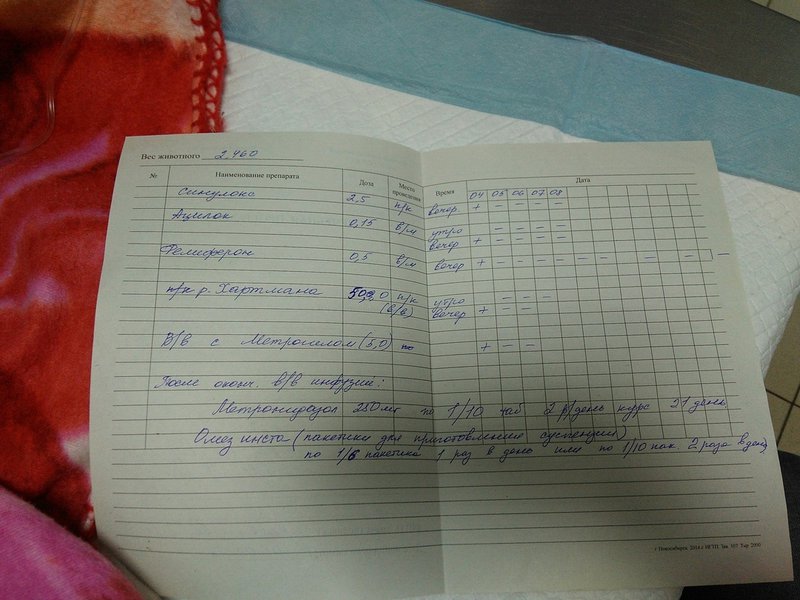 Вес животного 2,460
№ Наименование препарата Доза Место проведения Время Дата
04 05 06 07 08
Синулокс 2,5 п/к вечер. + - - - -
Ацилок 0,15 в/м утро - - - -
вечер + - - - -
Фелиферон 0,5 в/м вечер + - - - - - - - - -
п/к р. Хартмана 50,0 п/к утро - - -
(в/в) вечер + -
В/в с Метрогилом (5,0) + - -
После оконч. в/в инфузий:
Метронидазол 250 мг по 1/10 таб 2 р/день курс 21 день
Омез инста (пакетики для приготовления суспензии)
по 1/6 пакетика 1 раз в день или по 1/10 пак. 2 раза в день
г Новосибирск, 2014 г.